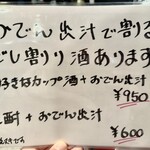 おでん出汁で割る
だし割り酒あります
好きなカップ酒+おでん出汁
¥950
焼酎+おでん出汁
¥600